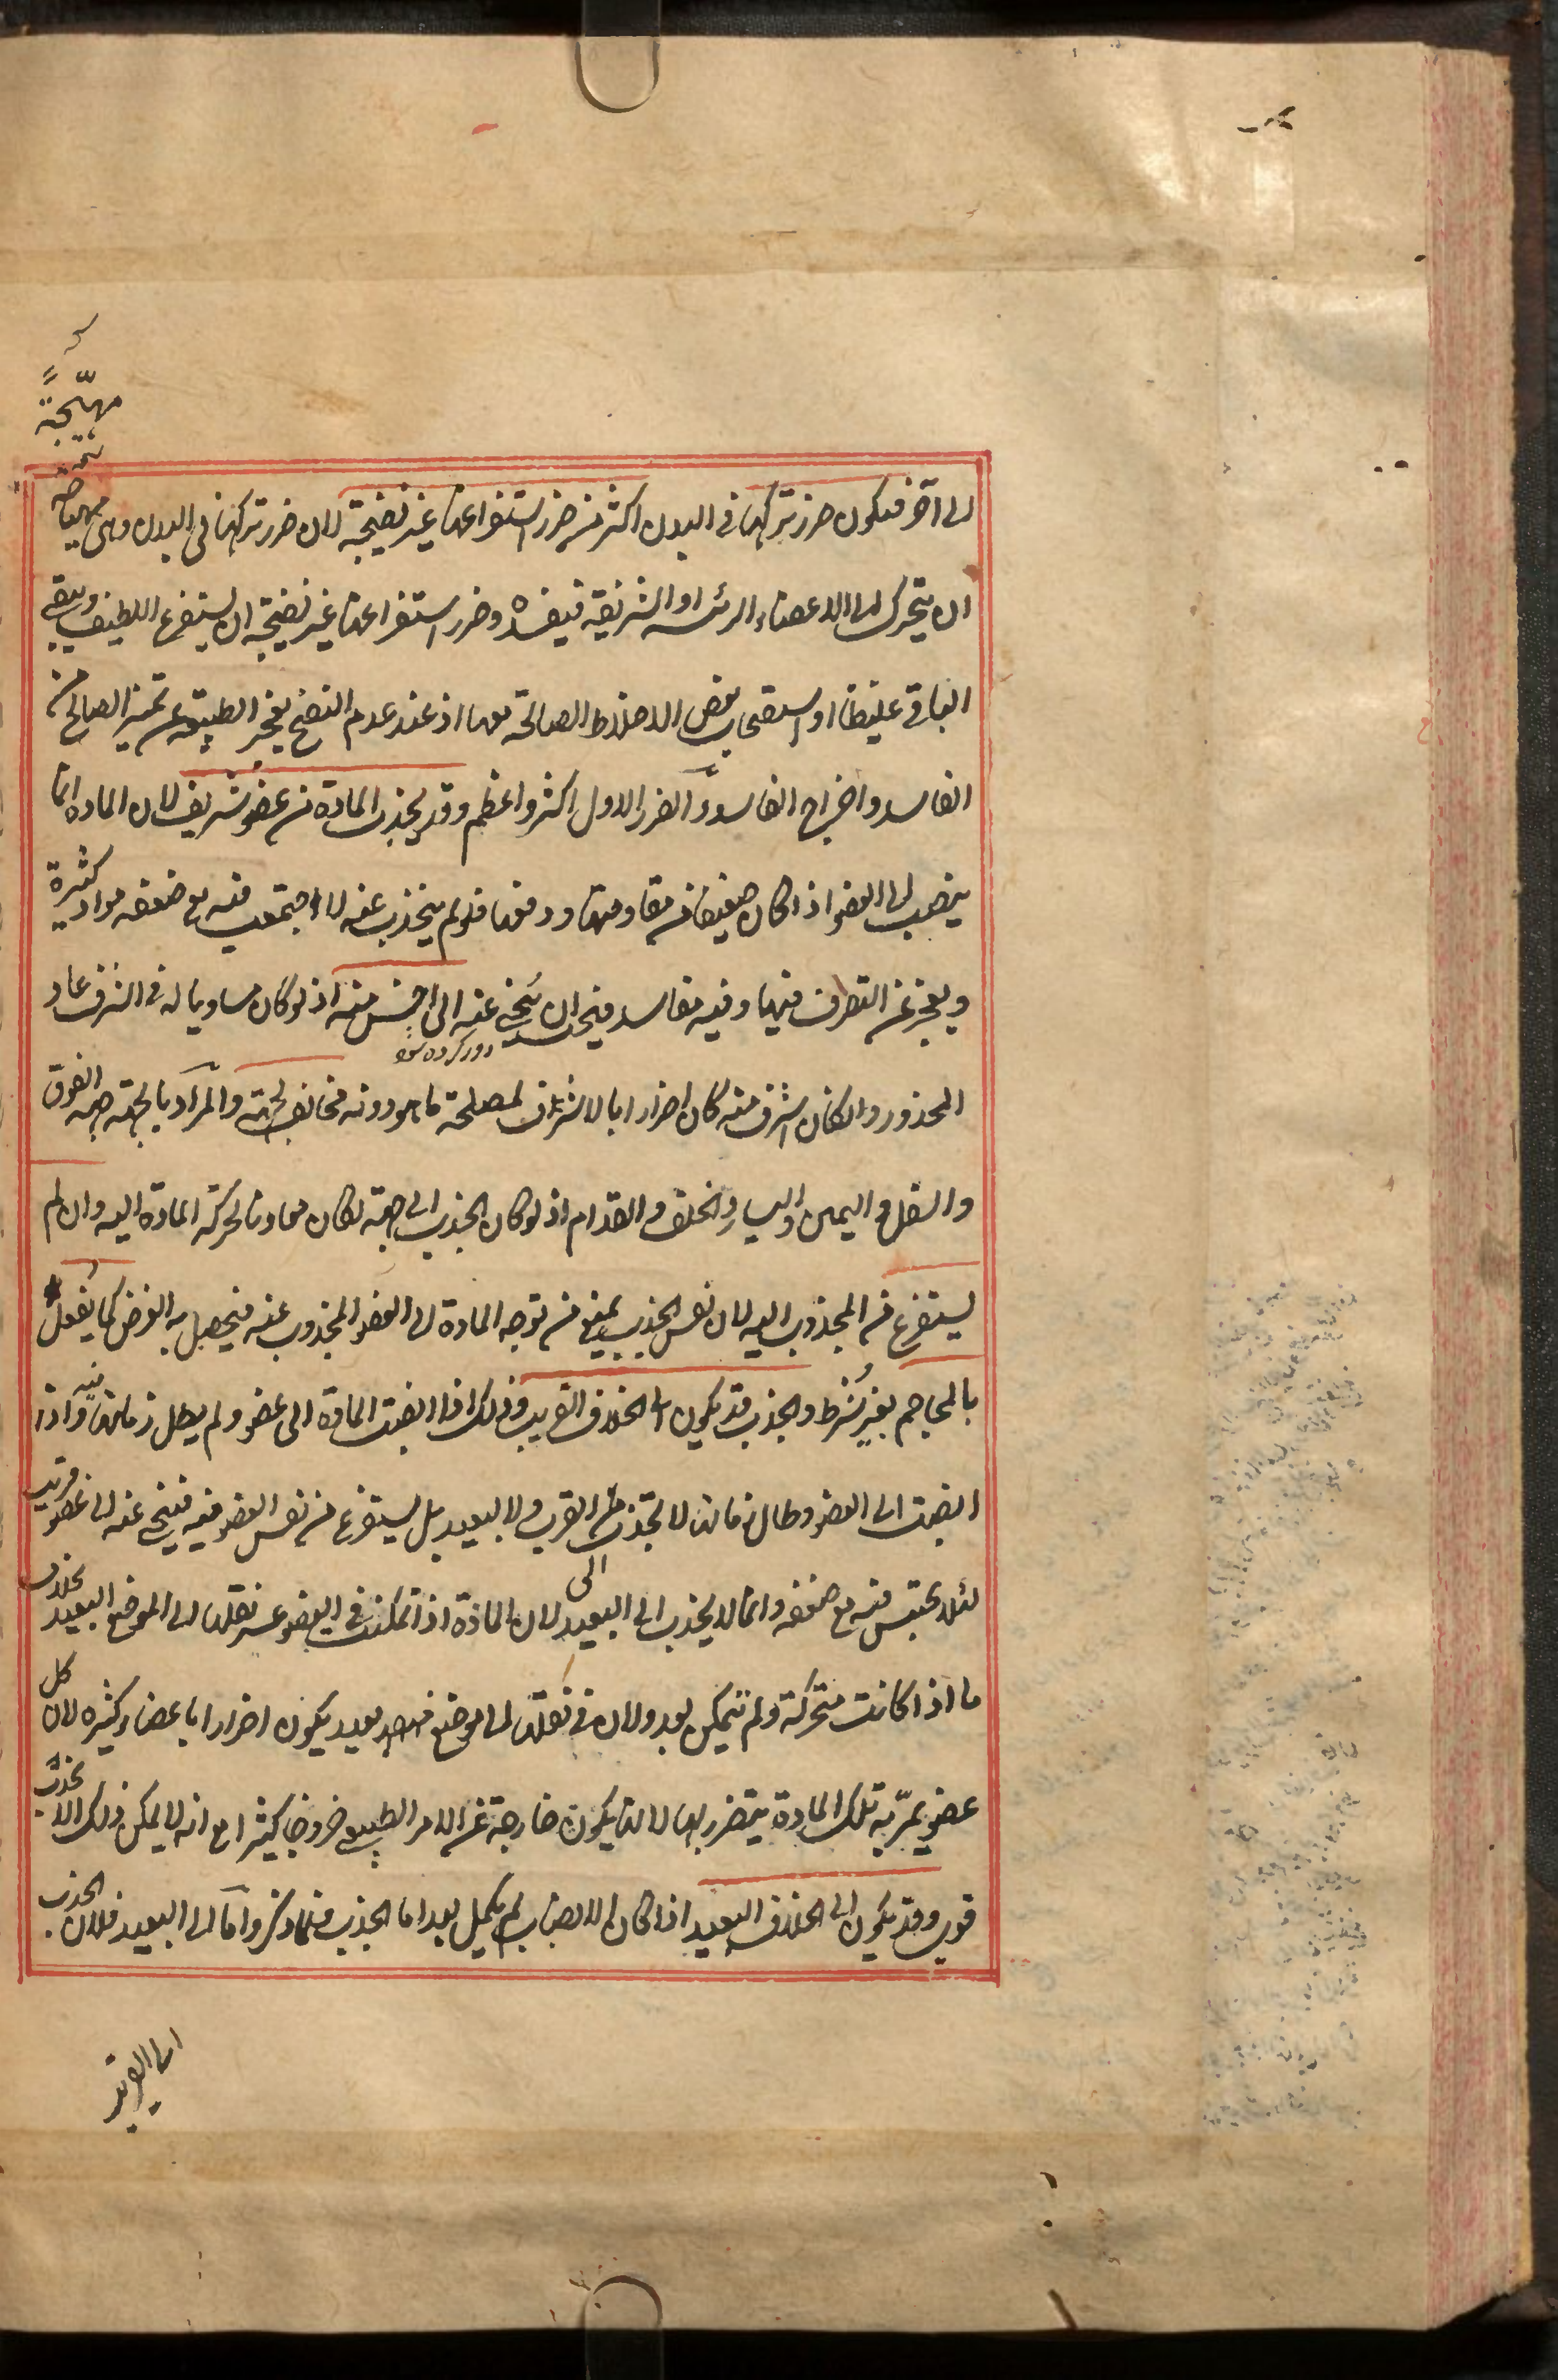 مهيّجةً
الى آخر فيكون ضرر تركها في البدن اكثر من ضرر استفراغها غير نضيجة لان ضرر تركها في البدن وهى مهتاجة
ان يتحرك الى الاعضاء الرئيسة او الشريفة فيفسده وضرر استفراغها غير نضيجة ان يستفرغ اللطيف ويبقى
الباقى غليظا او استصحاب بعض الاخلاط الصالحة معها اذ عند عدم النضج يعجز الطبيعة عن تمييز الصالح من
الفاسد واخراج الفاسد والضرر الاول اكثر واعظم وقد يجذب المادة من عضو شريف لان المادة انما
ينصب الى العضو اذا كان ضعيفا من مقاومتها ودفعها فلو لم ينجذب عنه لاجتمعت فيه مع ضعفه مواد كثيرة
ويعجز عن التصرف فيها وفيه مفاسد فيجب ان ينحى عنه الى اخس منه اذ لو كان مساويا له في الشرف عاد
دور كرده شود
المحذور ولو كان اشرف منه كان اضرارا بالاشرف لمصلحة ما هو دونه مخالف لجهة والمراد بالجهة جهة الفوق
والسفل واليمين واليسار والخلف والقدام اذ لو كان الجذب الى جهة لكان معاونا لحركة المادة اليه وان لم
يستفرغ من المجذوب اليه لان نفس الجذب يمنع من توجه المادة الى العضو المجذوب عنه فيحصل به الغرض كما يفعل
بالمحاجم بغير شرط والجذب قد يكون الى الخلاف القريب وذلك اذا انصبت المادة الى عضو ولم يطل زمانها فيه واذا
انصبت الى العضو وطال زمانها لا تجذب الى القريب ولا البعيد بل يستفرغ من نفس العضو فيه فينحى عنه الى عضو قريب
لئلا يحتبس فيه مع ضعفه وانما لا يجذب الى البعيد لان المادة اذا تمكنت في العضو عسر نقلها الى الموضع البعيد بخلاف
ما اذا كانت متحركة ولم تتمكن بعد ولان في نقلها الى موضع بعيد يكون اضرارا باعضاء كثيره لان كل
عضو يمرّ به تلك المادة يتضرر بها لانها يكون خارجة عن الامر الطبيعى خروجا كثيرا مع انه لا يمكن ذلك الا بجذب
قوى وقد يكون الى الخلاف البعيد اذا كان الانصباب لم يكمل بعد اما الجذب فلما ذكر واما الى البعيد فلان الجذب
الى القريب